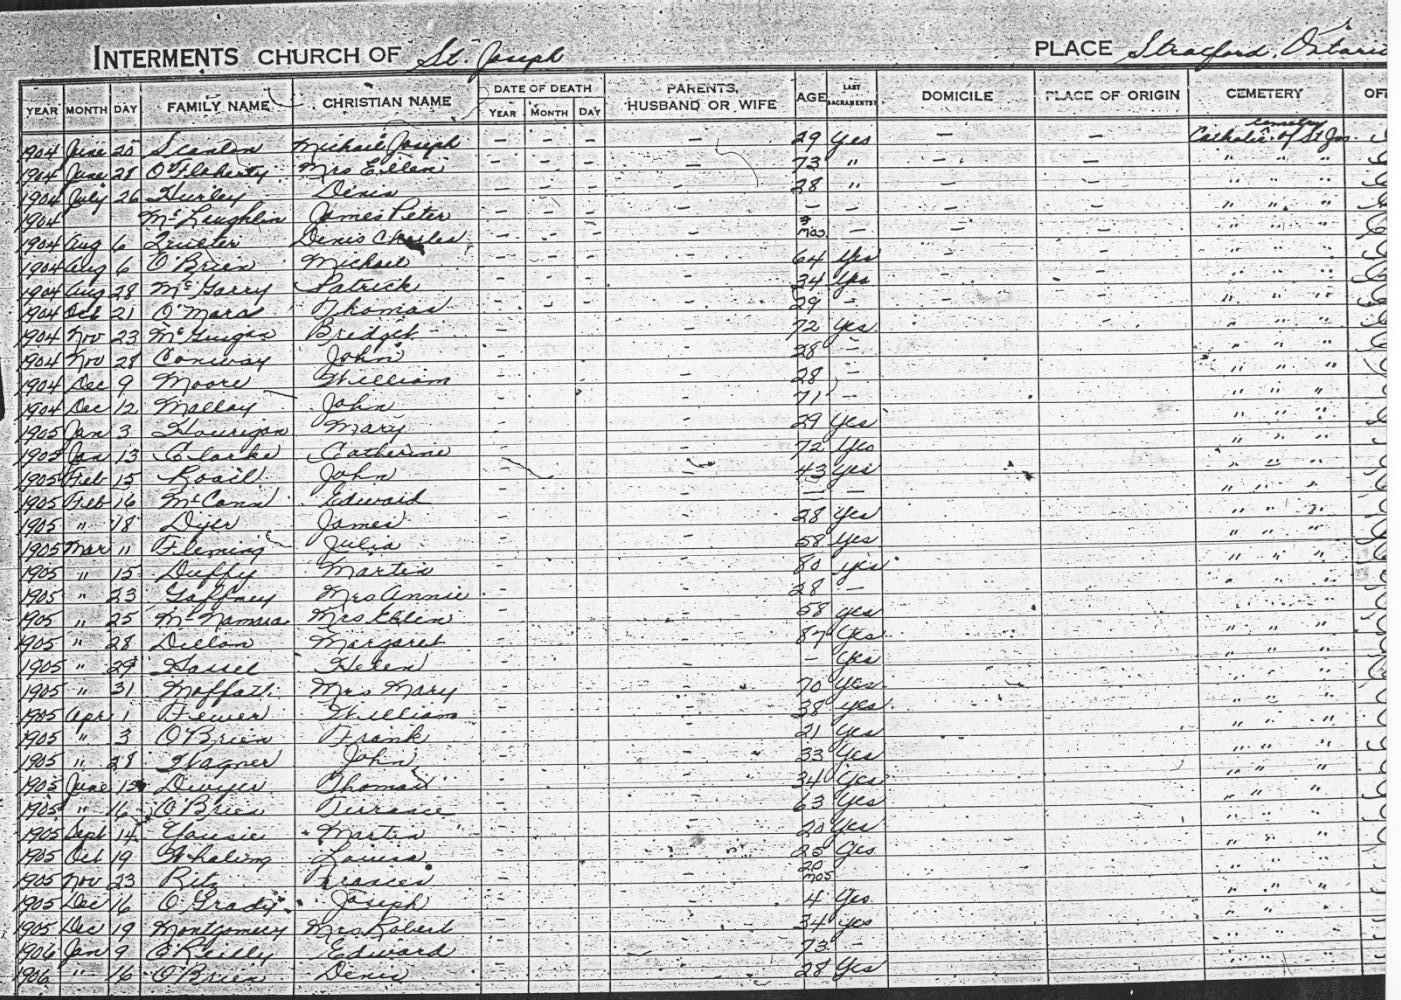 INTERMENTS CHURCH OF St. Joseph PLACE Stratford, Ontario
YEAR MONTH DAY FAMILY NAME CHRISTIAN NAME DATE OF DEATH YEAR MONTH DAY PARENTS, HUSBAND OR WIFE AGE LAST SACRAMENTS DOMICILE PLACE OF ORIGIN CEMETERY OF
1904 June 25 Scanlon Michael Joseph - - - - 29 Yes - - Catholic cemetery of St Jos
1904 June 28 O'Flaherty Mrs Ellen - - - - 73 " - - " " "
1904 July 26 Hurley Denis - - - - 28 " - - " " "
1904 McLaughlin James Peter - - - - - - - - " " "
1904 Aug 6 Denis Charles - - - - mos. - - - " " "
1904 Aug 6 O'Brien Michael - - - - 64 Yes " " "
1904 Aug 28 McGarry Patrick - - - - 34 Yes " " "
1904 Oct 21 O'Mara Thomas - - - - 29 - " " "
1904 Nov 23 McGuigan Bridget - - - - 72 Yes " " "
1904 Nov 28 Conway John - - 28 - " " "
1904 Dec 9 Moore William - - 28 - " " "
1904 Dec 12 Malloy John - - 71 - " " "
1905 Jan 3 Hourigan Mary - - 29 Yes " " "
1905 Jan 13 Clarke Catherine - - 72 Yes " " "
1905 Feb 15 John - - 43 Yes " " "
1905 Feb 16 McCann Edward - - - - " " "
1905 " 18 Dyer James - - 28 Yes " " "
1905 Mar 11 Fleming Julia - - 58 Yes " " "
1905 " 15 Duffy Martin - - 80 yes " " "
1905 " 23 Gaffney Mrs Annie - - 28 - " " "
1905 " 25 McNamara Mrs Ellen - - 58 yes " " "
1905 " 28 Dillon Margaret - - 87 Yes " " "
1905 " 29 Helen - - - Yes " " "
1905 " 31 Moffatt Mrs Mary - - 70 Yes " " "
1905 Apr 1 Fewer William - - 38 yes " " "
1905 " 3 O'Brien Frank - - 21 Yes " " "
1905 " 28 Wagner John - - 33 Yes " " "
1905 June 13 Dwyer Thomas - - 34 Yes " " "
1905 " 16 O'Brien Terrance - - 63 Yes " " "
1905 Sept 14 Martin - - 20 Yes " " "
1905 Oct 19 Whaling Louisa - - 25 Yes " " "
1905 Nov 23 Ritz Frances - - 20 mos " " "
1905 Dec 16 O'Grady Joseph - - 4 Yes " " "
1905 Dec 19 Montgomery Mrs Robert - - 34 yes " " "
1906 Jan 9 O'Reilly Edward - - 73 - " " "
1906 " 16 O'Brien Denis - - 28 Yes " " "